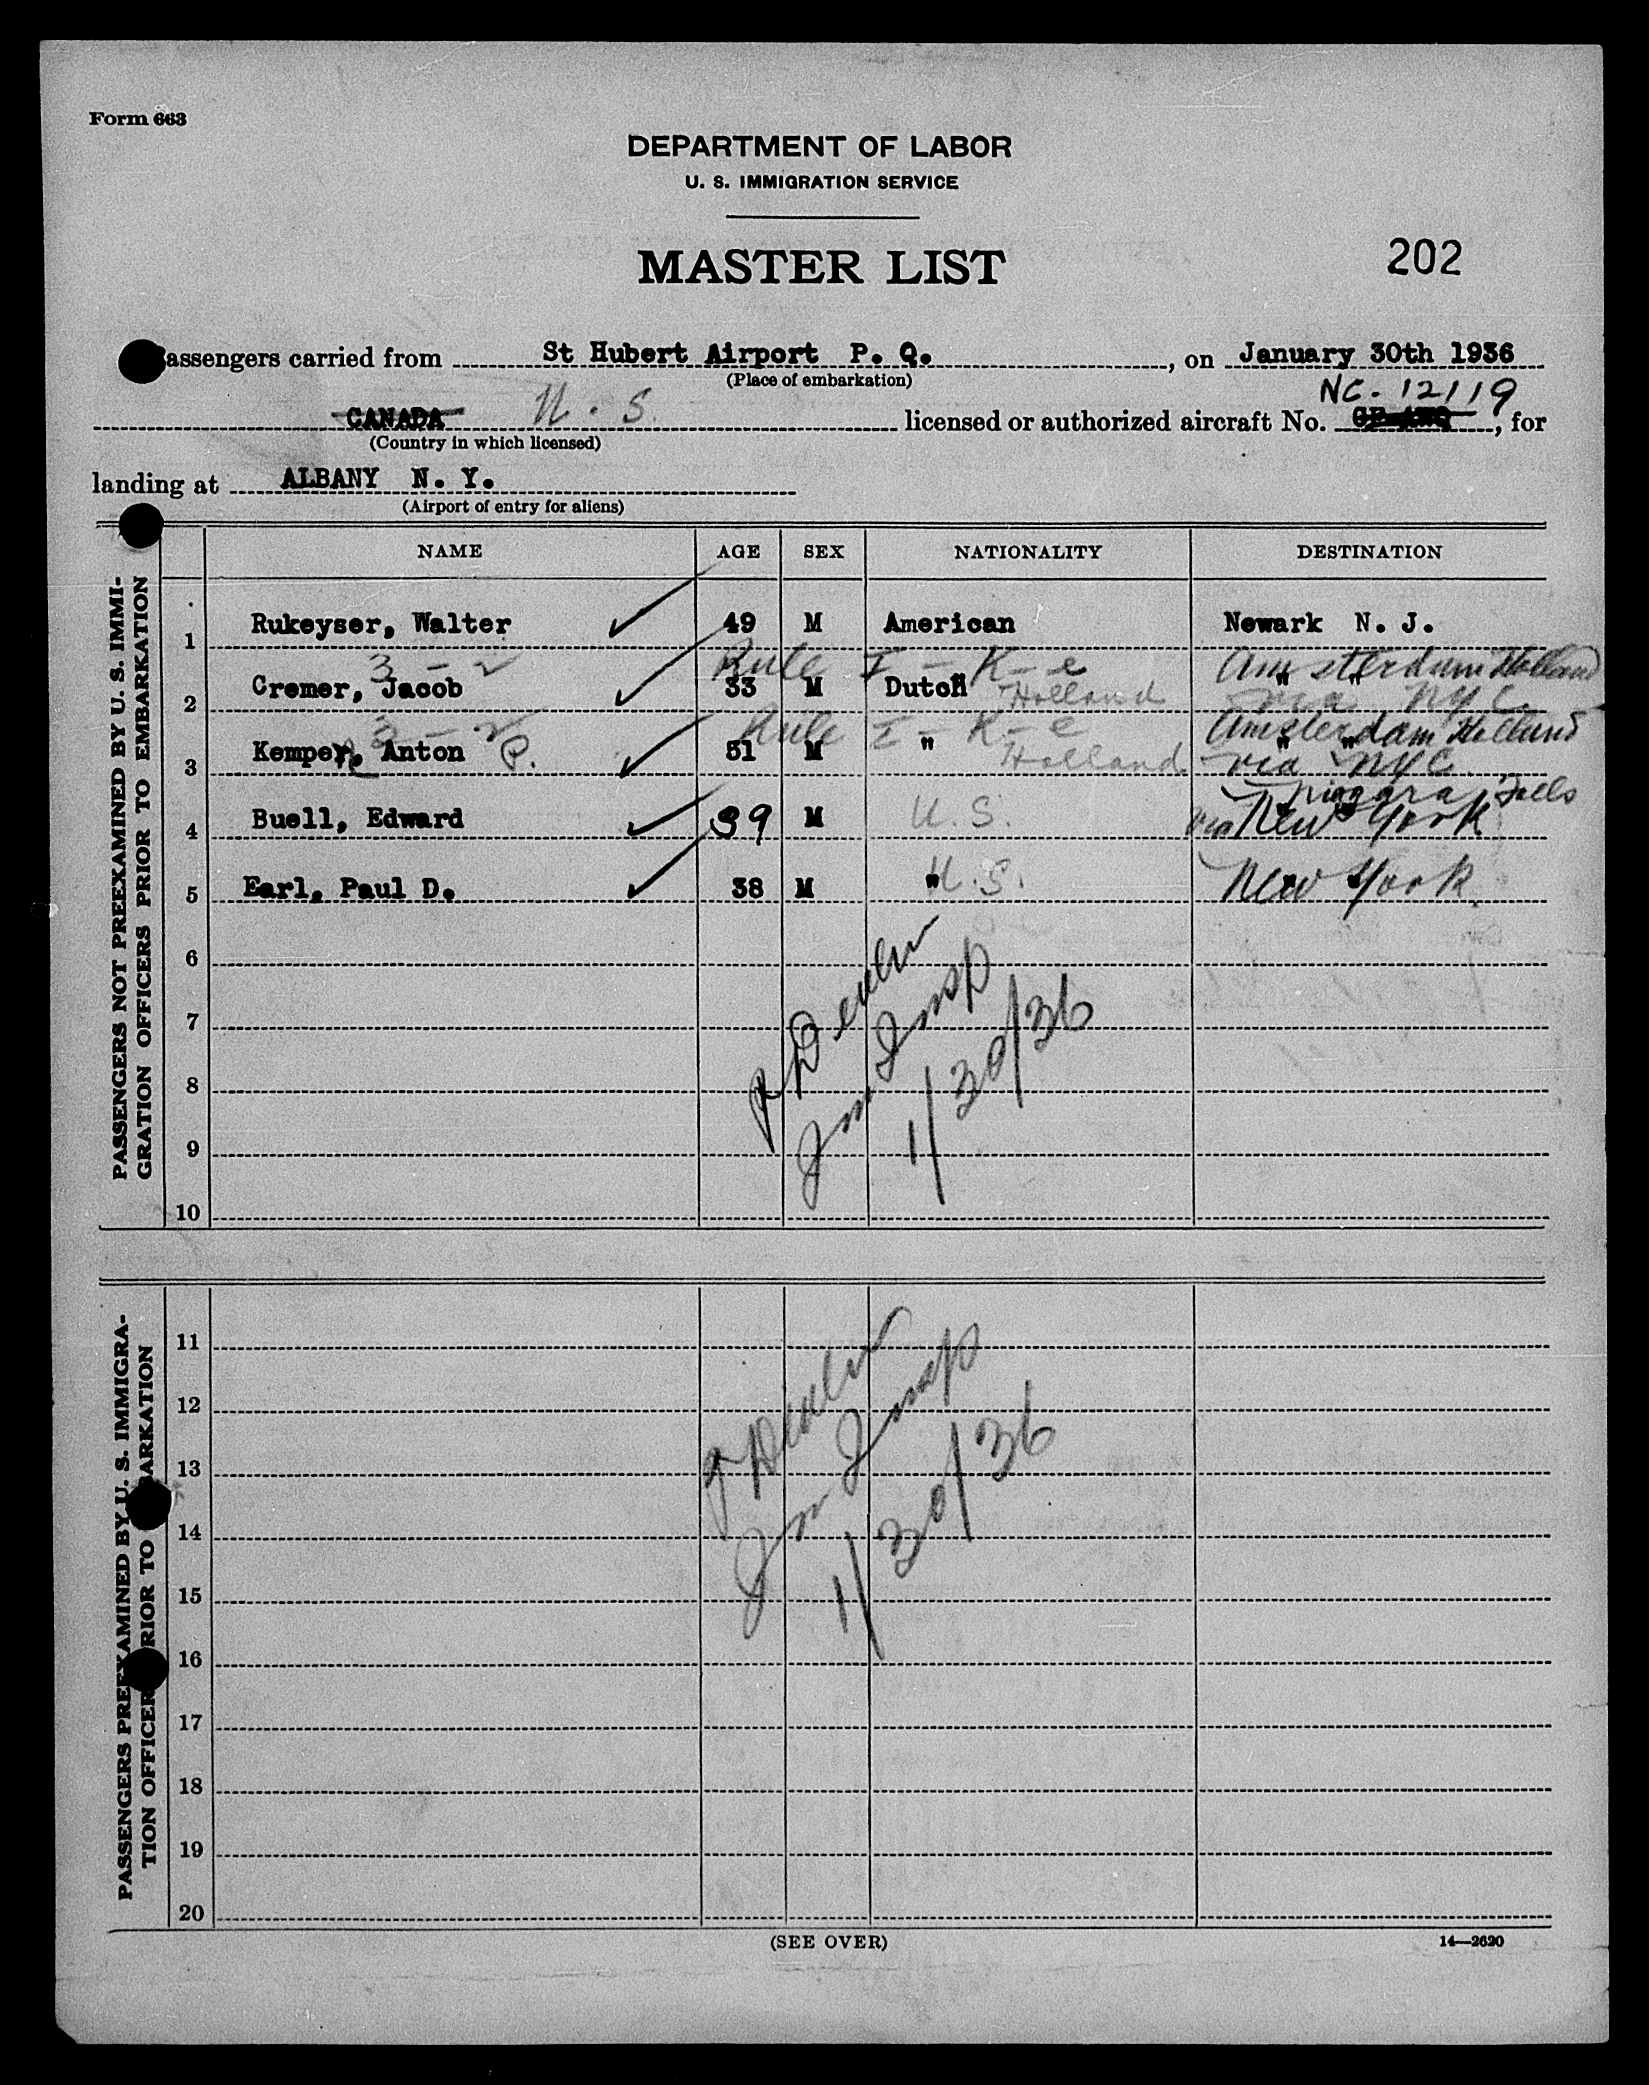 Form 663
DEPARTMENT OF LABOR
U. S. IMMIGRATION SERVICE
MASTER LIST
202
assengers carried from St Hubert Airport P. Q., on January 30th 1936
(Place of embarkation)
NC. 12119
CANADA U. S. licensed or authorized aircraft No. , for
(Country in which licensed)
landing at ALBANY N. Y.
(Airport of entry for aliens)
NAME AGE SEX NATIONALITY DESTINATION
PASSENGERS NOT PREEXAMINED BY U. S. IMMI-
GRATION OFFICERS PRIOR TO EMBARKATION
1 Rukeyser, Walter 49 M American Newark N. J.
3 - 2 Rule I - K - e Amsterdam Holland
2 Cremer, Jacob 33 M Dutch Holland " " via NYC
3 - 2 Rule I - K - e Amsterdam Holland
3 Kemper, Anton P. 31 M " Holland " " via NYC
Niagara Falls
4 Buell, Edward 39 M U. S. via New York
5 Earl, Paul D. 38 M " U. S. New York
6
7
8
9
10
Imm Insp
1/30/36
PASSENGERS PREEXAMINED BY U. S. IMMIGRA-
TION OFFICER RIOR TO ARKATION
11
12
13
14
15
16
17
18
19
20
Imm Insp
1/30/36
(SEE OVER)
14—2620